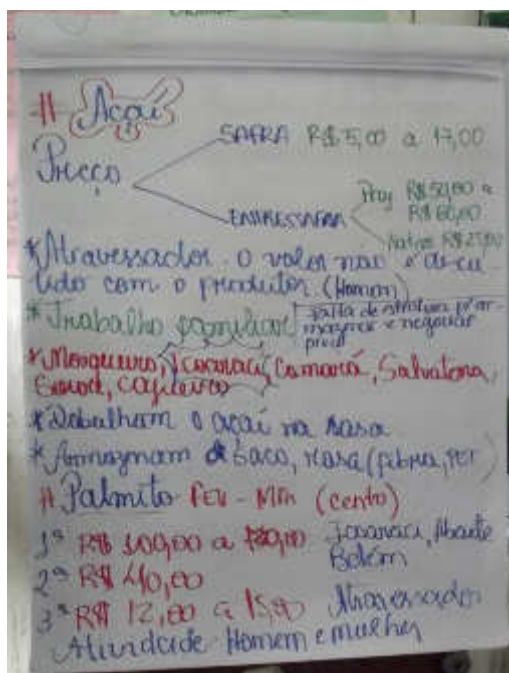 # Açaí
SAFRA R$ 15,00 a 17,00
Preço
Proj R$ 50,00 a
R$ 60,00
ENTRESSAFRA
Nativo R$ 25,00
* Atravessador. o valor não é discu
tido com o produtor (Homem)
* Trabalho familiar falta de estrutura p/ ar-
mazenar e negociar
* Mosqueiro, Icoaraci, Camará, Salvaterra,
* Debulham o açaí na rasa
* Armazenam saco, rasa (fibra, PET)
# Palmito FEV - (cento)
1ª R$ 100,00 a Icoaraci, Abaete
Belém
2ª R$ 40,00
3ª R$ 12,00 a 15,00 Atravessador
Atividade Homem e mulher